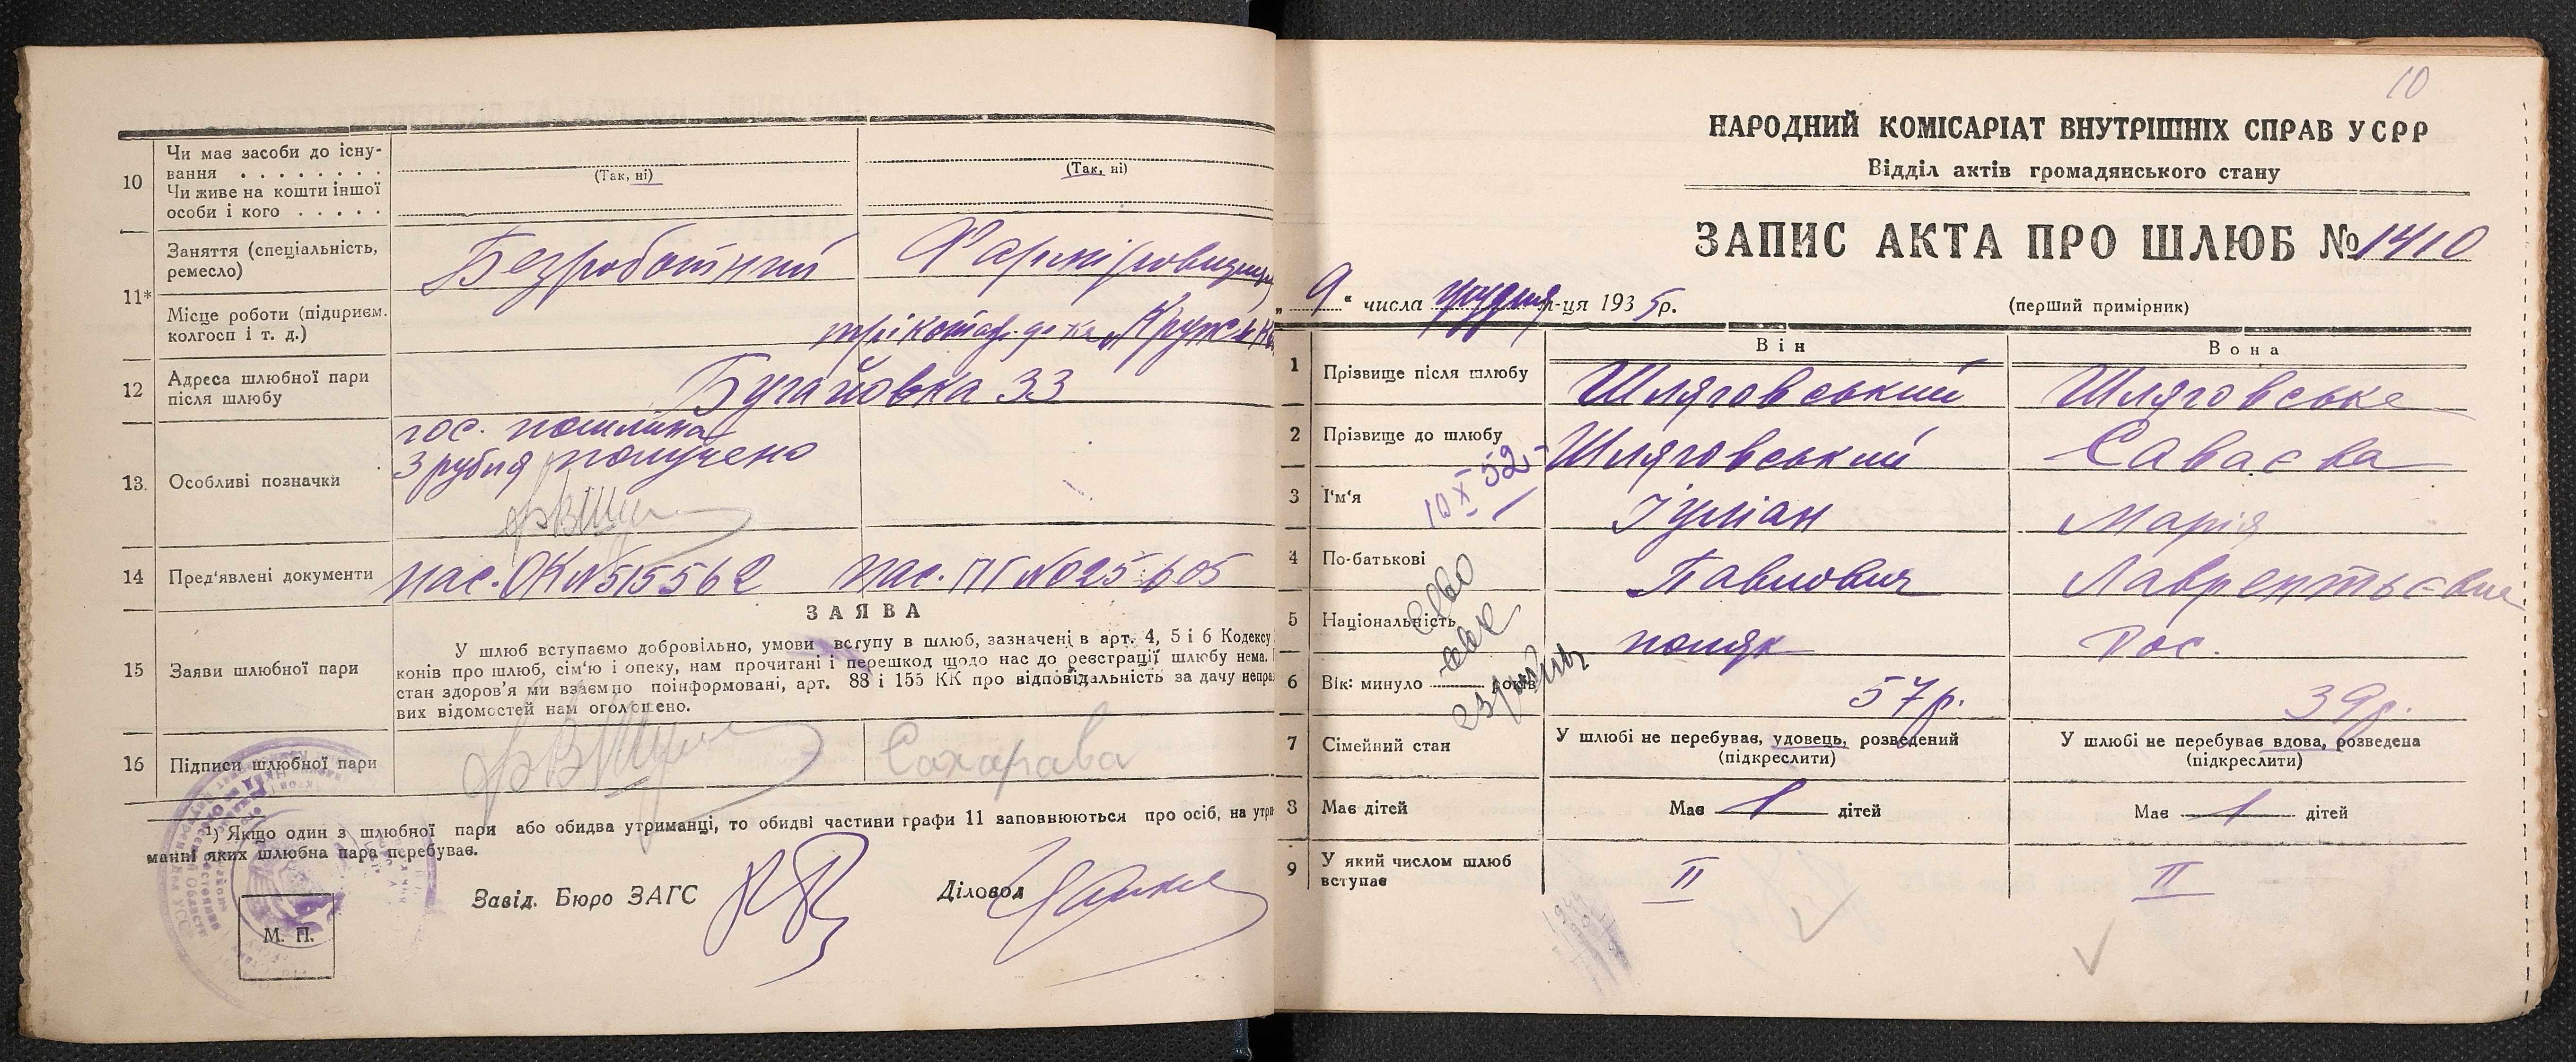 10
Чи має засоби до існу-
вання . . . . . . . .
(Так, ні)
(Так, ні)
Чи живе на кошти іншої
особи і кого . . . . .
11*
Заняття (спеціальність,
ремесло)
Безработний
Місце роботи (підприєм.
колгосп і т. д.)
12
Адреса шлюбної пари
після шлюбу
Бугайовка 33
13.
Особливі позначки
гос. пошлина
3 рубля получено
14
Пред'явлені документи
пас. ОК №515562
пас. ПГ №025605
ЗАЯВА
15
Заяви шлюбної пари
У шлюб вступаємо добровільно, умови вступу в шлюб, зазначені в арт. 4, 5 і 6 Кодексу
конів про шлюб, сім'ю і опеку, нам прочитані і перешкод щодо нас до реєстрації шлюбу нема.
стан здоров'я ми взаємно поінформовані, арт. 88 і 155 КК про відповідальність за дачу неправ
вих відомостей нам оголошено.
16
Підписи шлюбної пари
¹) Якщо один з шлюбної пари або обидва утриманці, то обидві частини графи 11 заповнюються про осіб, на утри
манні яких шлюбна пара перебуває.
Завід. Бюро ЗАГС
Діловод
М. П.
10
НАРОДНИЙ КОМІСАРІАТ ВНУТРІШНІХ СПРАВ УСРР
Відділ актів громадянського стану
ЗАПИС АКТА ПРО ШЛЮБ № 1410
„ 9 “ числа грудня м-ця 1935р.
(перший примірник)
Він
Вона
1
Прізвище після шлюбу
Шляговський
Шляговське
2
Прізвище до шлюбу
Шляговський
Саваєва
10 X 52
3
І'м'я
Іуліан
Марія
4
По-батькові
Павлович
Лаврентьєвна
5
Національність
поляк
Рос.
6
Вік: минуло ........ років
57р.
39р.
7
Сімейний стан
У шлюбі не перебував, удовець, розведений
(підкреслити)
У шлюбі не перебував вдова, розведена
(підкреслити)
8
Має дітей
Має 1 дітей
Має 1 дітей
9
У який числом шлюб
вступає
II
II